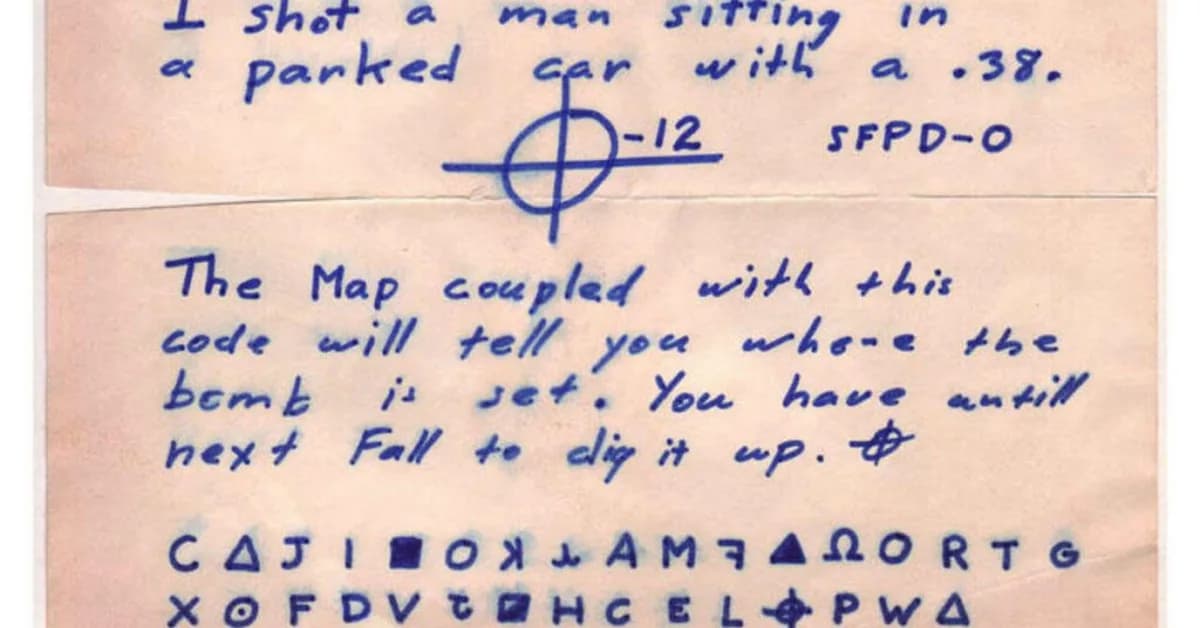 I shot a man sitting in
a parked car with a .38.
-12 SFPD-0
The Map coupled with this
code will tell you whore the
bomb is set. You have untill
next Fall to dig it up. ⌖
C Δ J I ■ O ꓘ ⅄ A M ꟻ ▲ Ω O R T G
X ⊙ F D V Ⴀ ◪ H C E L ⌖ P W Δ